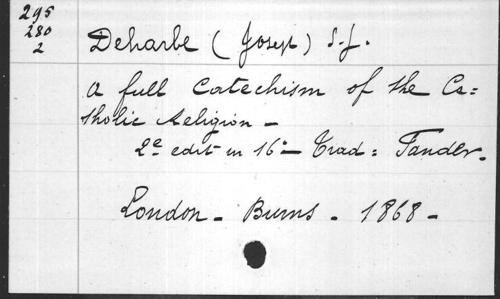 295
280
2
Deharbe (Joseph) S.J.
A full Catechism of the Ca=
tholic Religion -
2e edit in 16° - Trad: Fander.
London - Burns - 1868 -